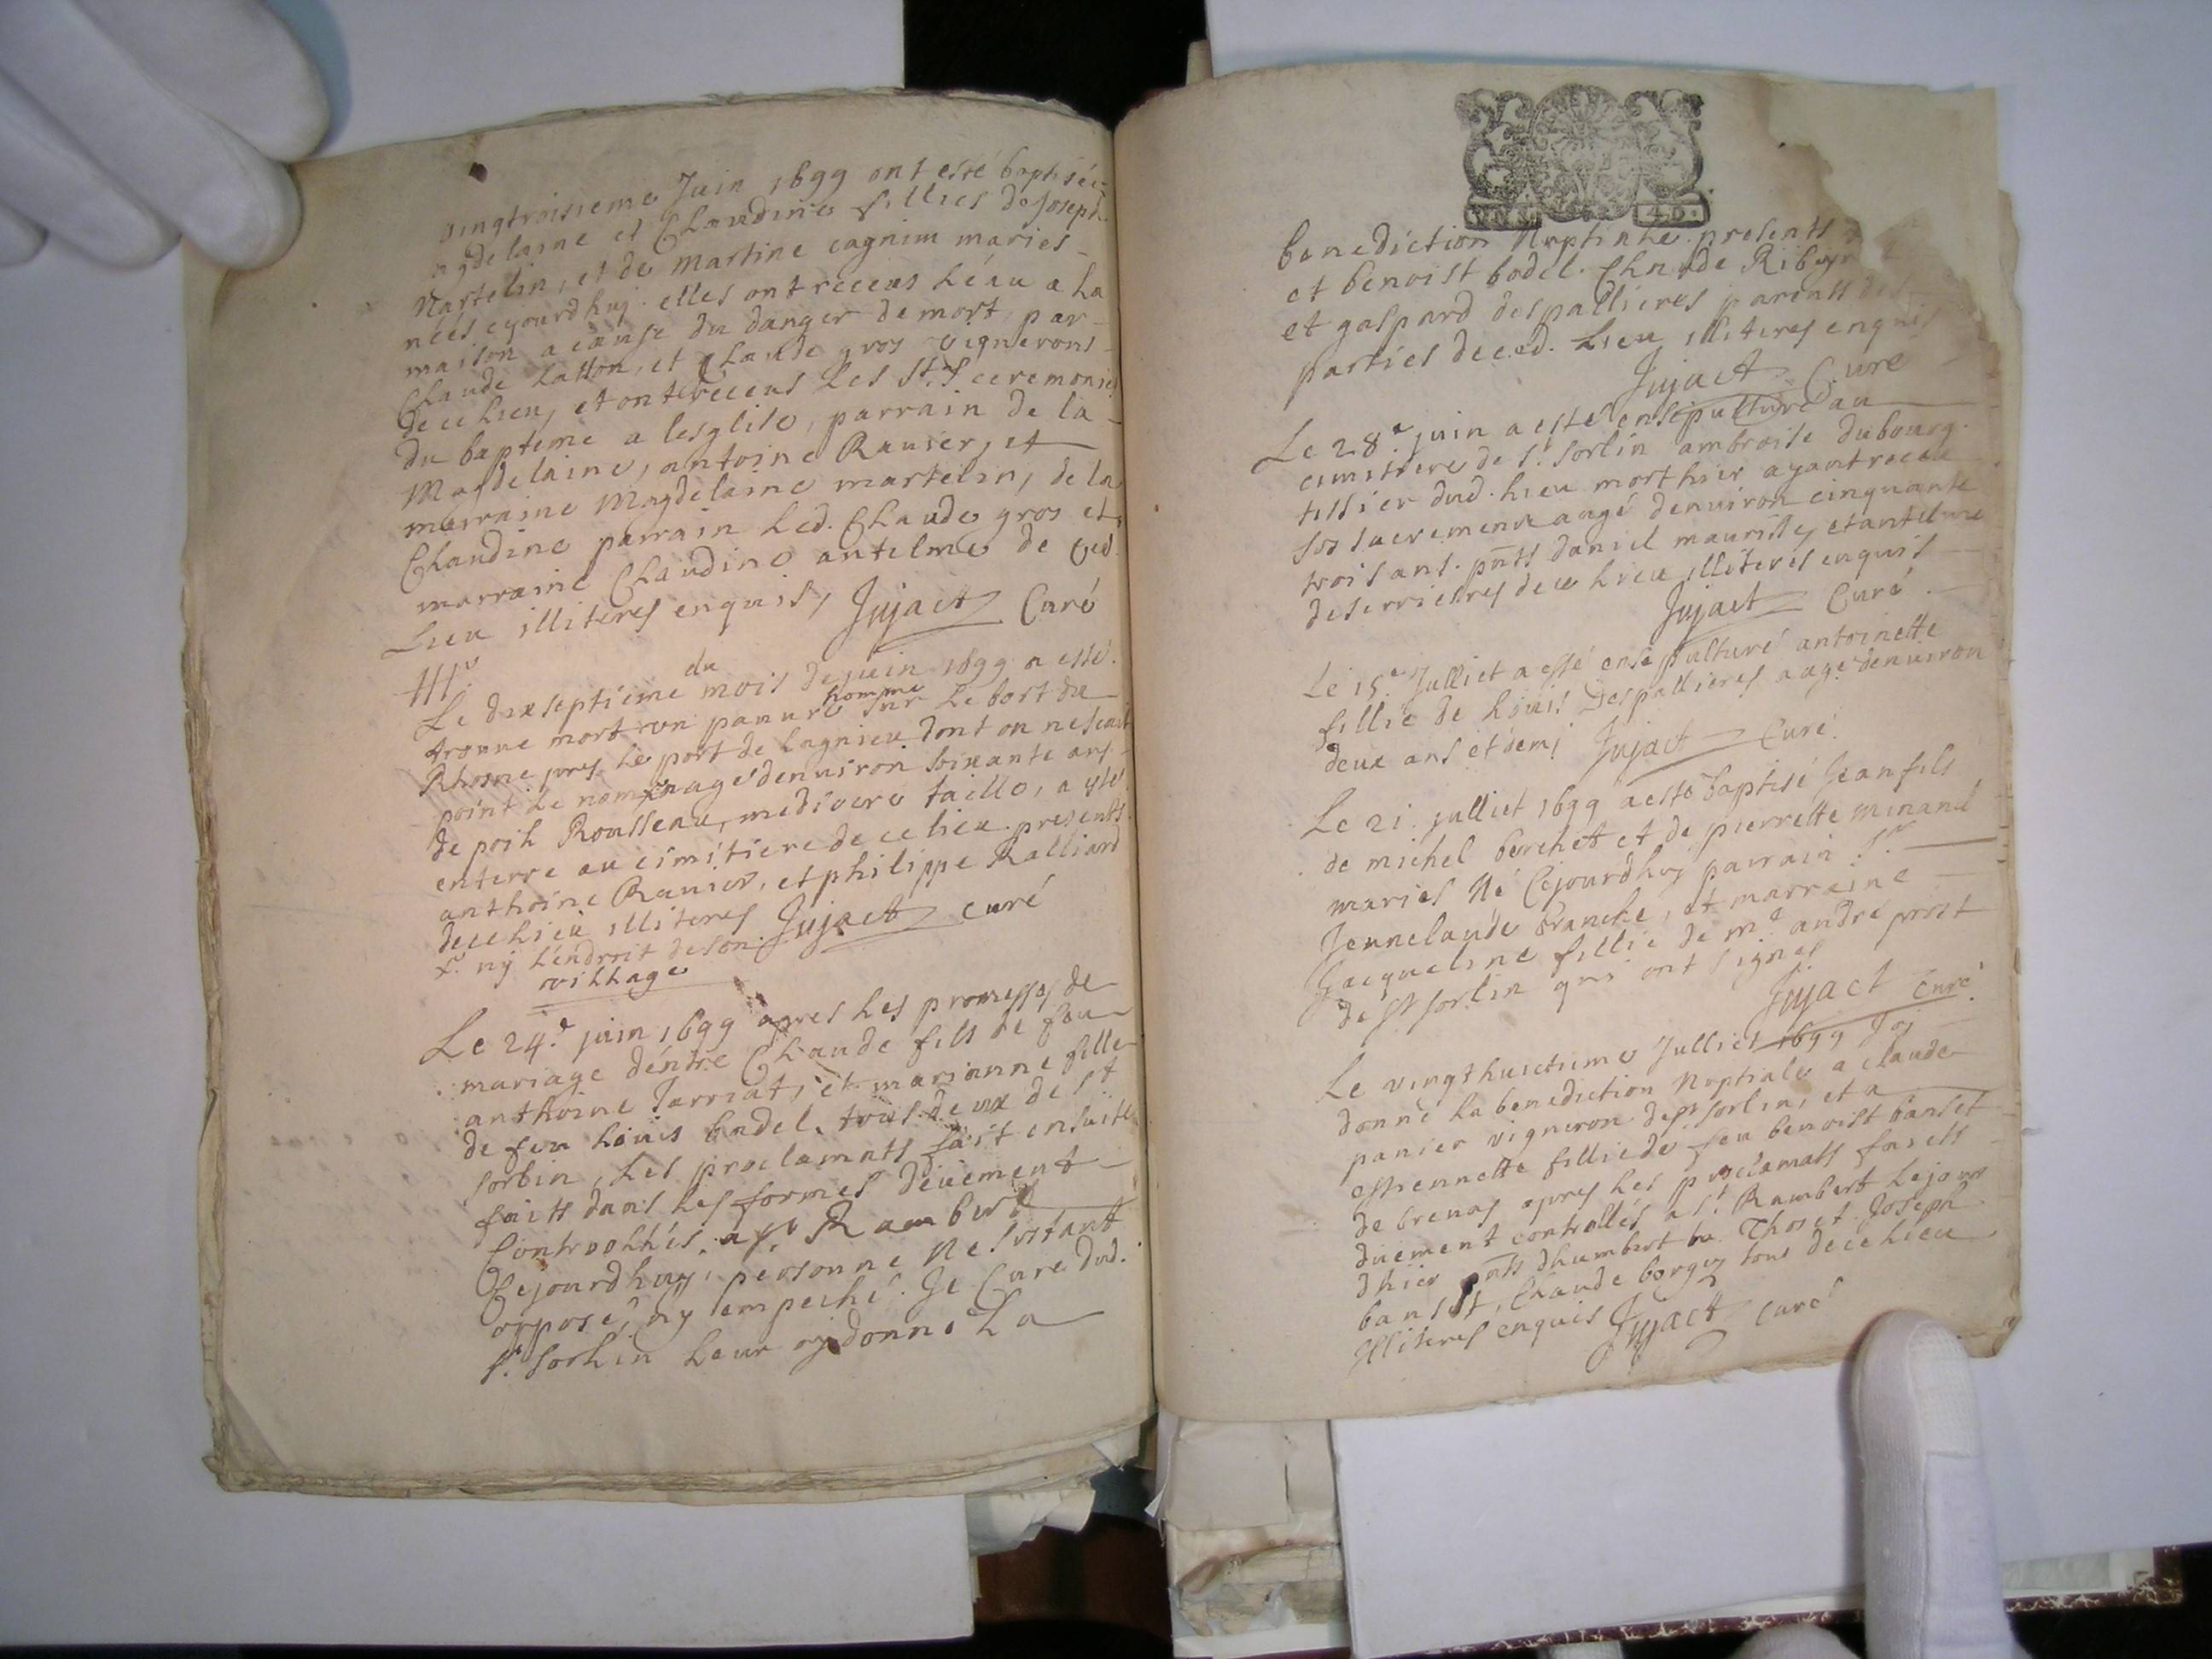 vingtroisieme Juin 1699 ont esté baptisées
magdelaine et Claudine fillies de Joseph
Martelin, et de Martine cagnim mariés
néés cejourdhuj. elles ont receus l'éau a la
maison a cause du danger de mort, par
Claude Lallon, et Claude gros vignerons
de ce lieu, et ont receus les Sts ceremonies
du bapteme a lesglise, parrain de la
Magdelaine, antoine Rauier, et
marraine Magdelaine martelin, de la
Claudine parrain led. Claude gros et
marraine Claudine antelme de ced.
Lieu illiteres enquis, Jujact Curé
Le dixseptieme du mois de juin 1699 a esté
trouue mort un pauure homme sur le bort du
Rhosne pres le port de Lagnieu dont on ne scait
point le nom x aagé denuiron soixante ans
de poil Rousseau, mediocre taille, a esté
enterre au cimitiere de ce lieu. presents
anthoine Rauier, et philippe Ralliard
de ce lieu illiteres Jujact curé
x. ny l'endroit de son
village
Le 24.e juin 1699 apres les promesses de
mariage d'éntre Claude fils de feu
anthoine Jarriat, et marianne fille
de feu Loüis bodel, tous deux de st
sorlin, les proclamats sait ensuite
faits dans les formes deüement
Controollés a st Rambert
Cejourdhuy, personne ne sestant
opposé, ny empeché. Je Cure dud.
st. sorlin leur ay donné La
benediction Nuptialle. presents
et benoist bodel. Claude Ribeyr
et gaspard despallieres parents des
parties deced. lieu illiteres enquis
Jujact Curé
Le 28.e juin a esté ensepulturé au
cimitiere de st. sorlin ambroise dubourg
tissier dud. lieu mort hier ayant receu
ses sacremens aagé denuiron cinquante
trois ans. pnts daniel maurisse et antelme
deserrieres de ce lieu illiteres enquis
Jujact Curé
Le 15.e Julliet a esté ensepulturé antoinette
fillie de Loüis Despallieres aagé denuiron
deux ans et demi Jujact Curé.
Le 21. julliet 1699 a esté baptisé Jean fils
de michel berchet et de pierrette minand
mariés Né Cejourdhuy parrain Sr.
Jeanclaude Franche, et marraine
Jacqueline fillie de me. andré prost
de st sorlin qui ont signes
Jujact Curé
Le vingthuictieme Julliet 1699 Jay
donné la benediction Nuptiale a claude
panier vigneron de st. sorlin, et a
estiennette fillie de feu benoist banset
de brenas apres les proclamats faicts
duement controllés a st. Rambert le jour
dhier pnts dhumbert bu Thoset Joseph
banset, Claude borgey tous de ce lieu
illiteres enquis Jujact curé